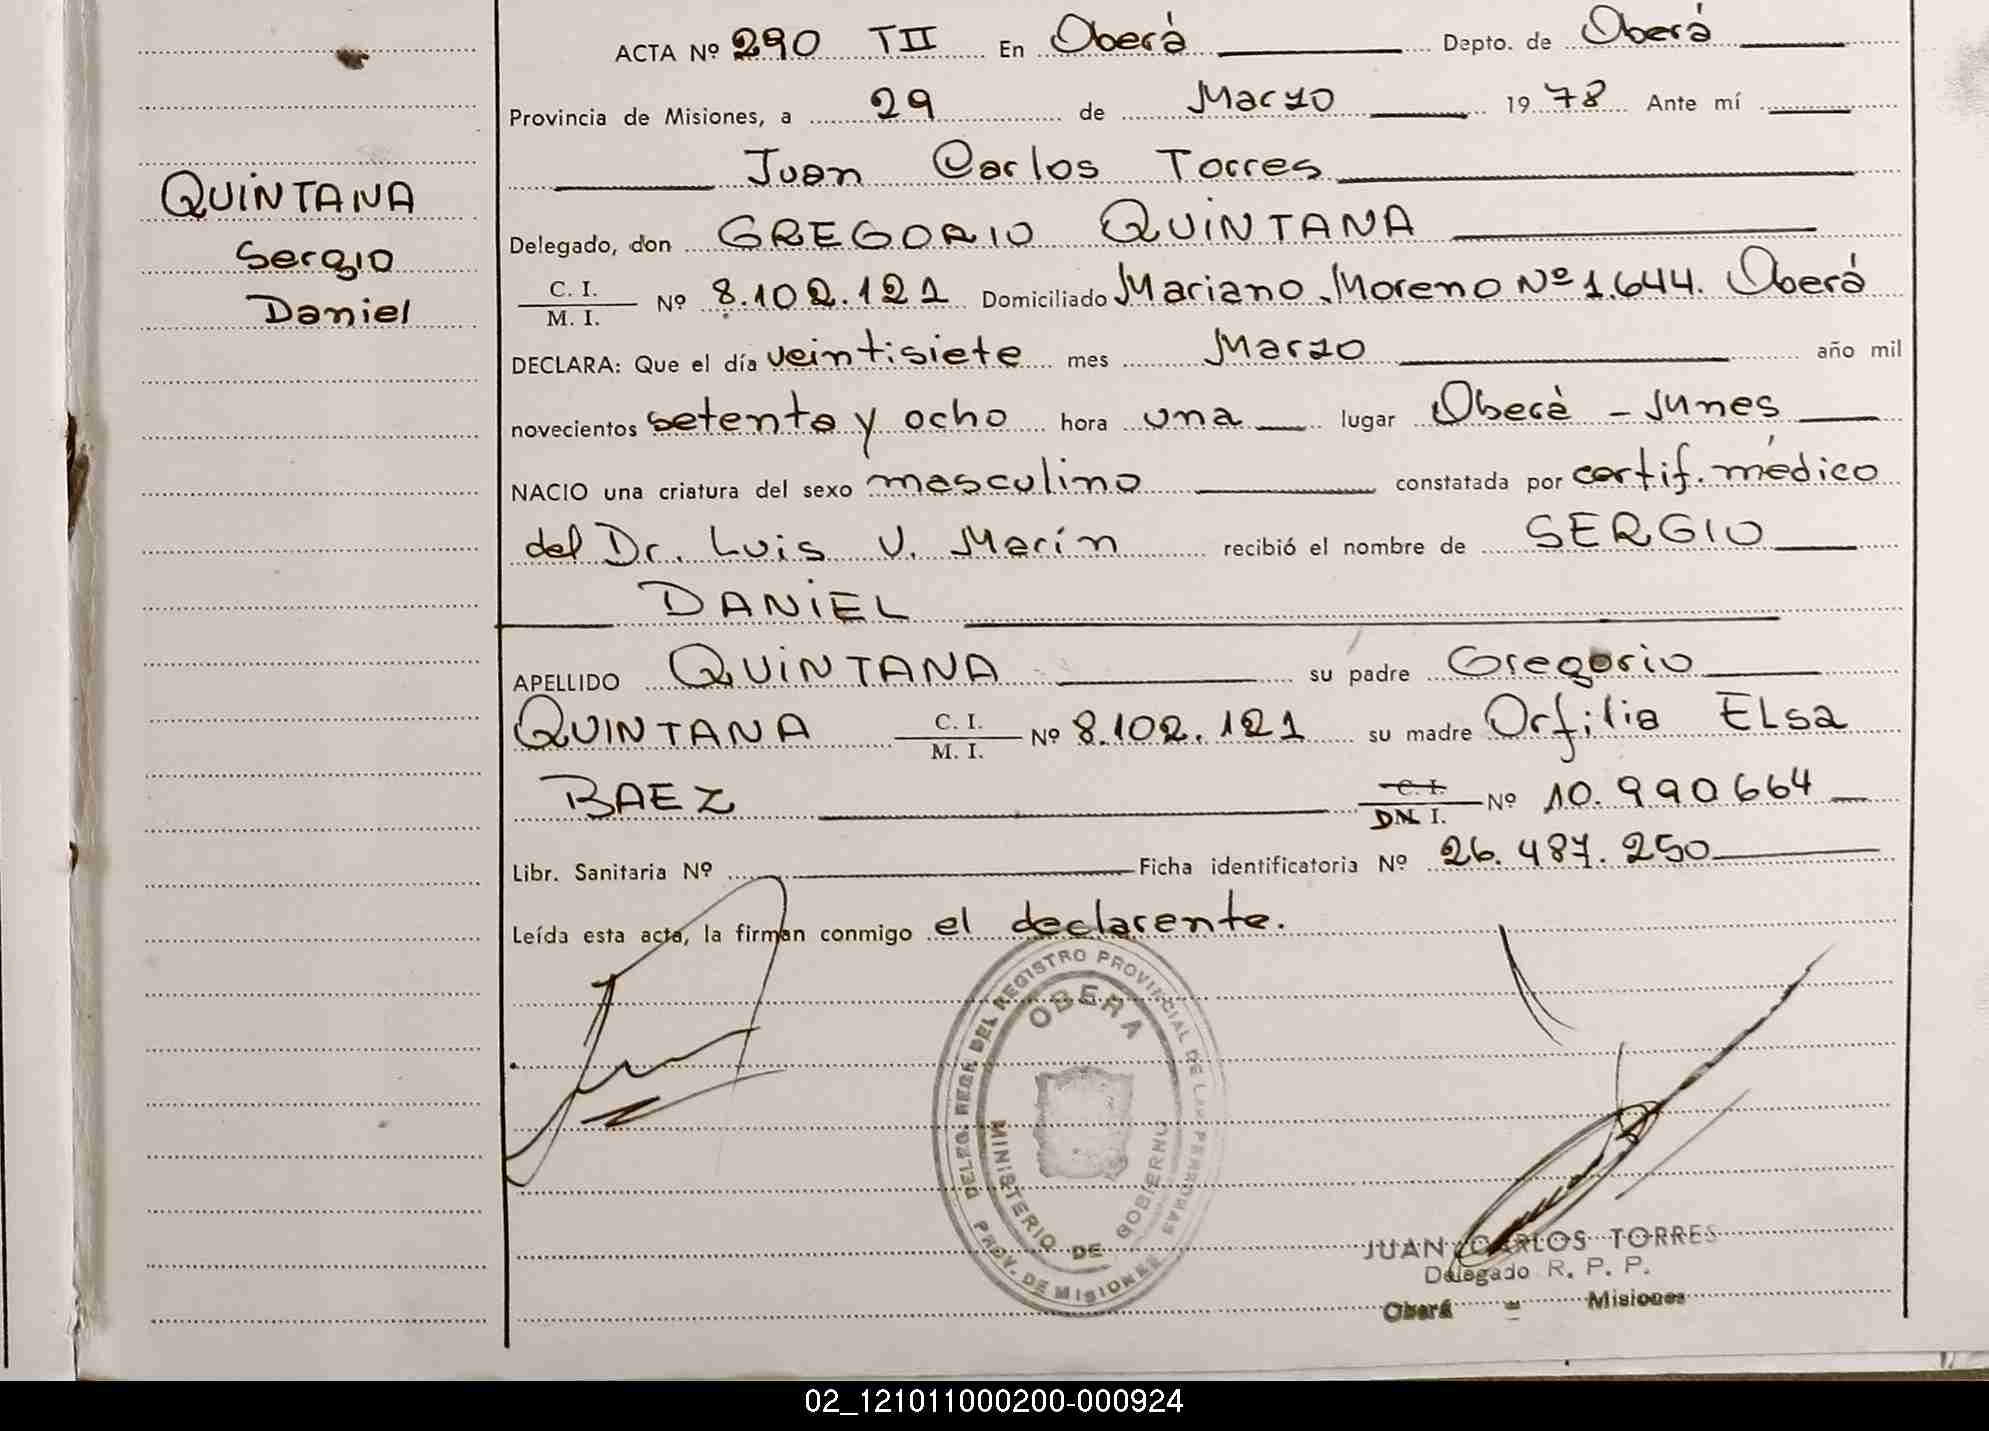 ACTA Nº 290 TII En Oberá Depto. de Oberá
Provincia de Misiones, a 29 de Marzo 1978 Ante mí
Juan Carlos Torres
QUINTANA
Sergio
Daniel
Delegado, don GREGORIO QUINTANA
C. I. / M. I. Nº 8.102.121 Domiciliado Mariano Moreno Nº 1.644. Oberá
DECLARA: Que el día veintisiete mes Marzo año mil
novecientos setenta y ocho hora una lugar Oberá - lunes
NACIO una criatura del sexo masculino constatada por certif. médico
del Dr. Luis V. Marín recibió el nombre de SERGIO
DANIEL
APELLIDO QUINTANA su padre Gregorio
QUINTANA C. I. / M. I. Nº 8.102.121 su madre Orfilia ELsa
BAEZ C. I. / DN. I. Nº 10.990664
Libr. Sanitaria Nº Ficha identificatoria Nº 26.487.250
Leída esta acta, la firman conmigo el declarante.
DELEG. REGR. DEL REGISTRO PROVINCIAL DE LAS PERSONAS
OBERA
MINISTERIO DE GOBIERNO
PROV. DE MISIONES
JUAN CARLOS TORRES
Delegado R. P. P.
Oberá - Misiones
02_121011000200-000924